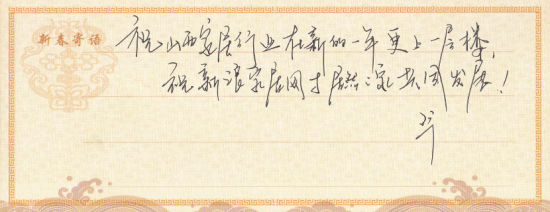 新春寄语
祝山西家居行业在新的一年更上一层楼,
祝新浪家居网与居然之家共同发展!